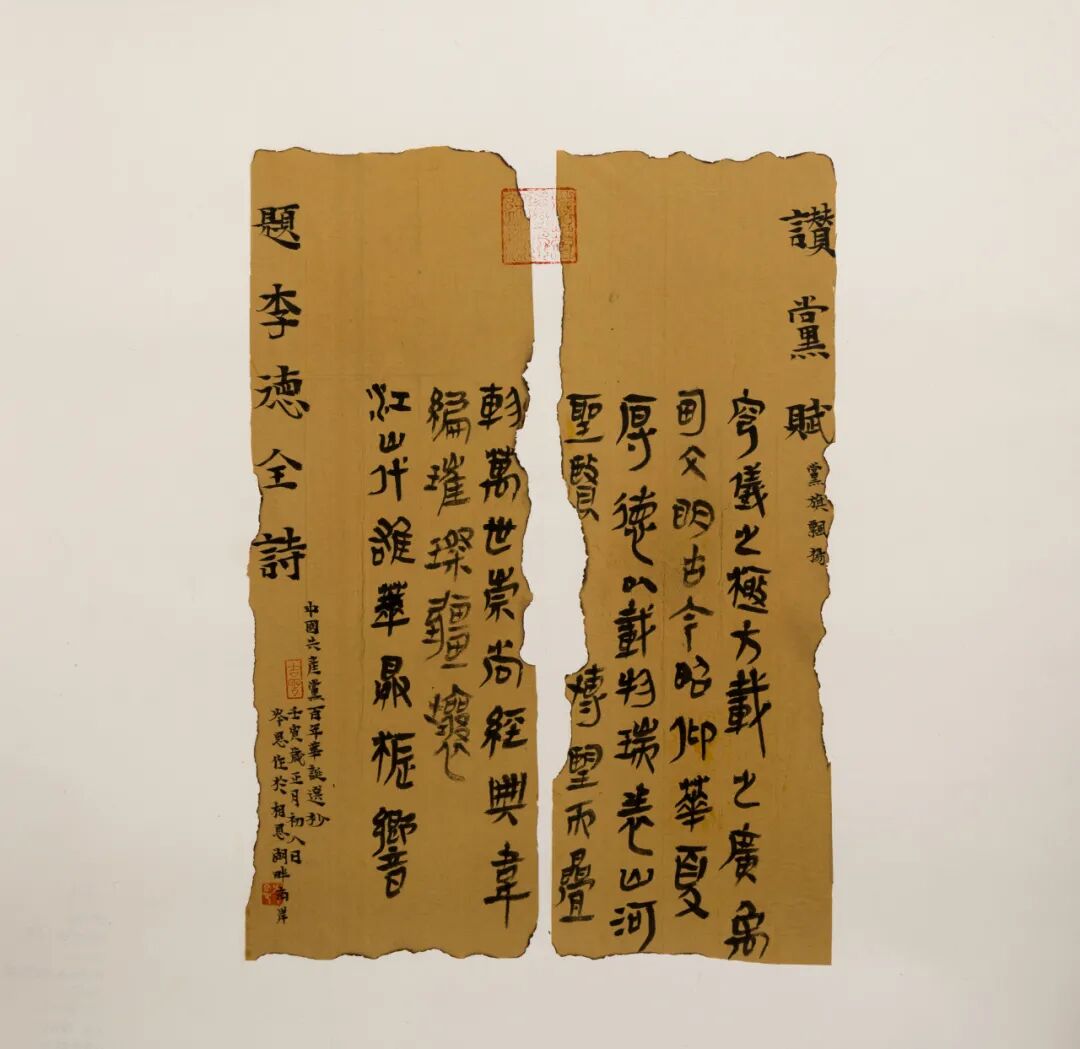 讃黨賦
黨旗飄揚
穹儀之極方載之廣禹
甸文明古今昭仰華夏
厚德以載物瑞裘山河
聖賢 博望而疊
軫萬世崇尚經典韋
編璀璨疆襄
江山代誰華鼎振鄉音
題李德全詩
中國共産黨百年華誕選抄
壬寅歲正月初八日
岑恩作於相思湖畔南岸